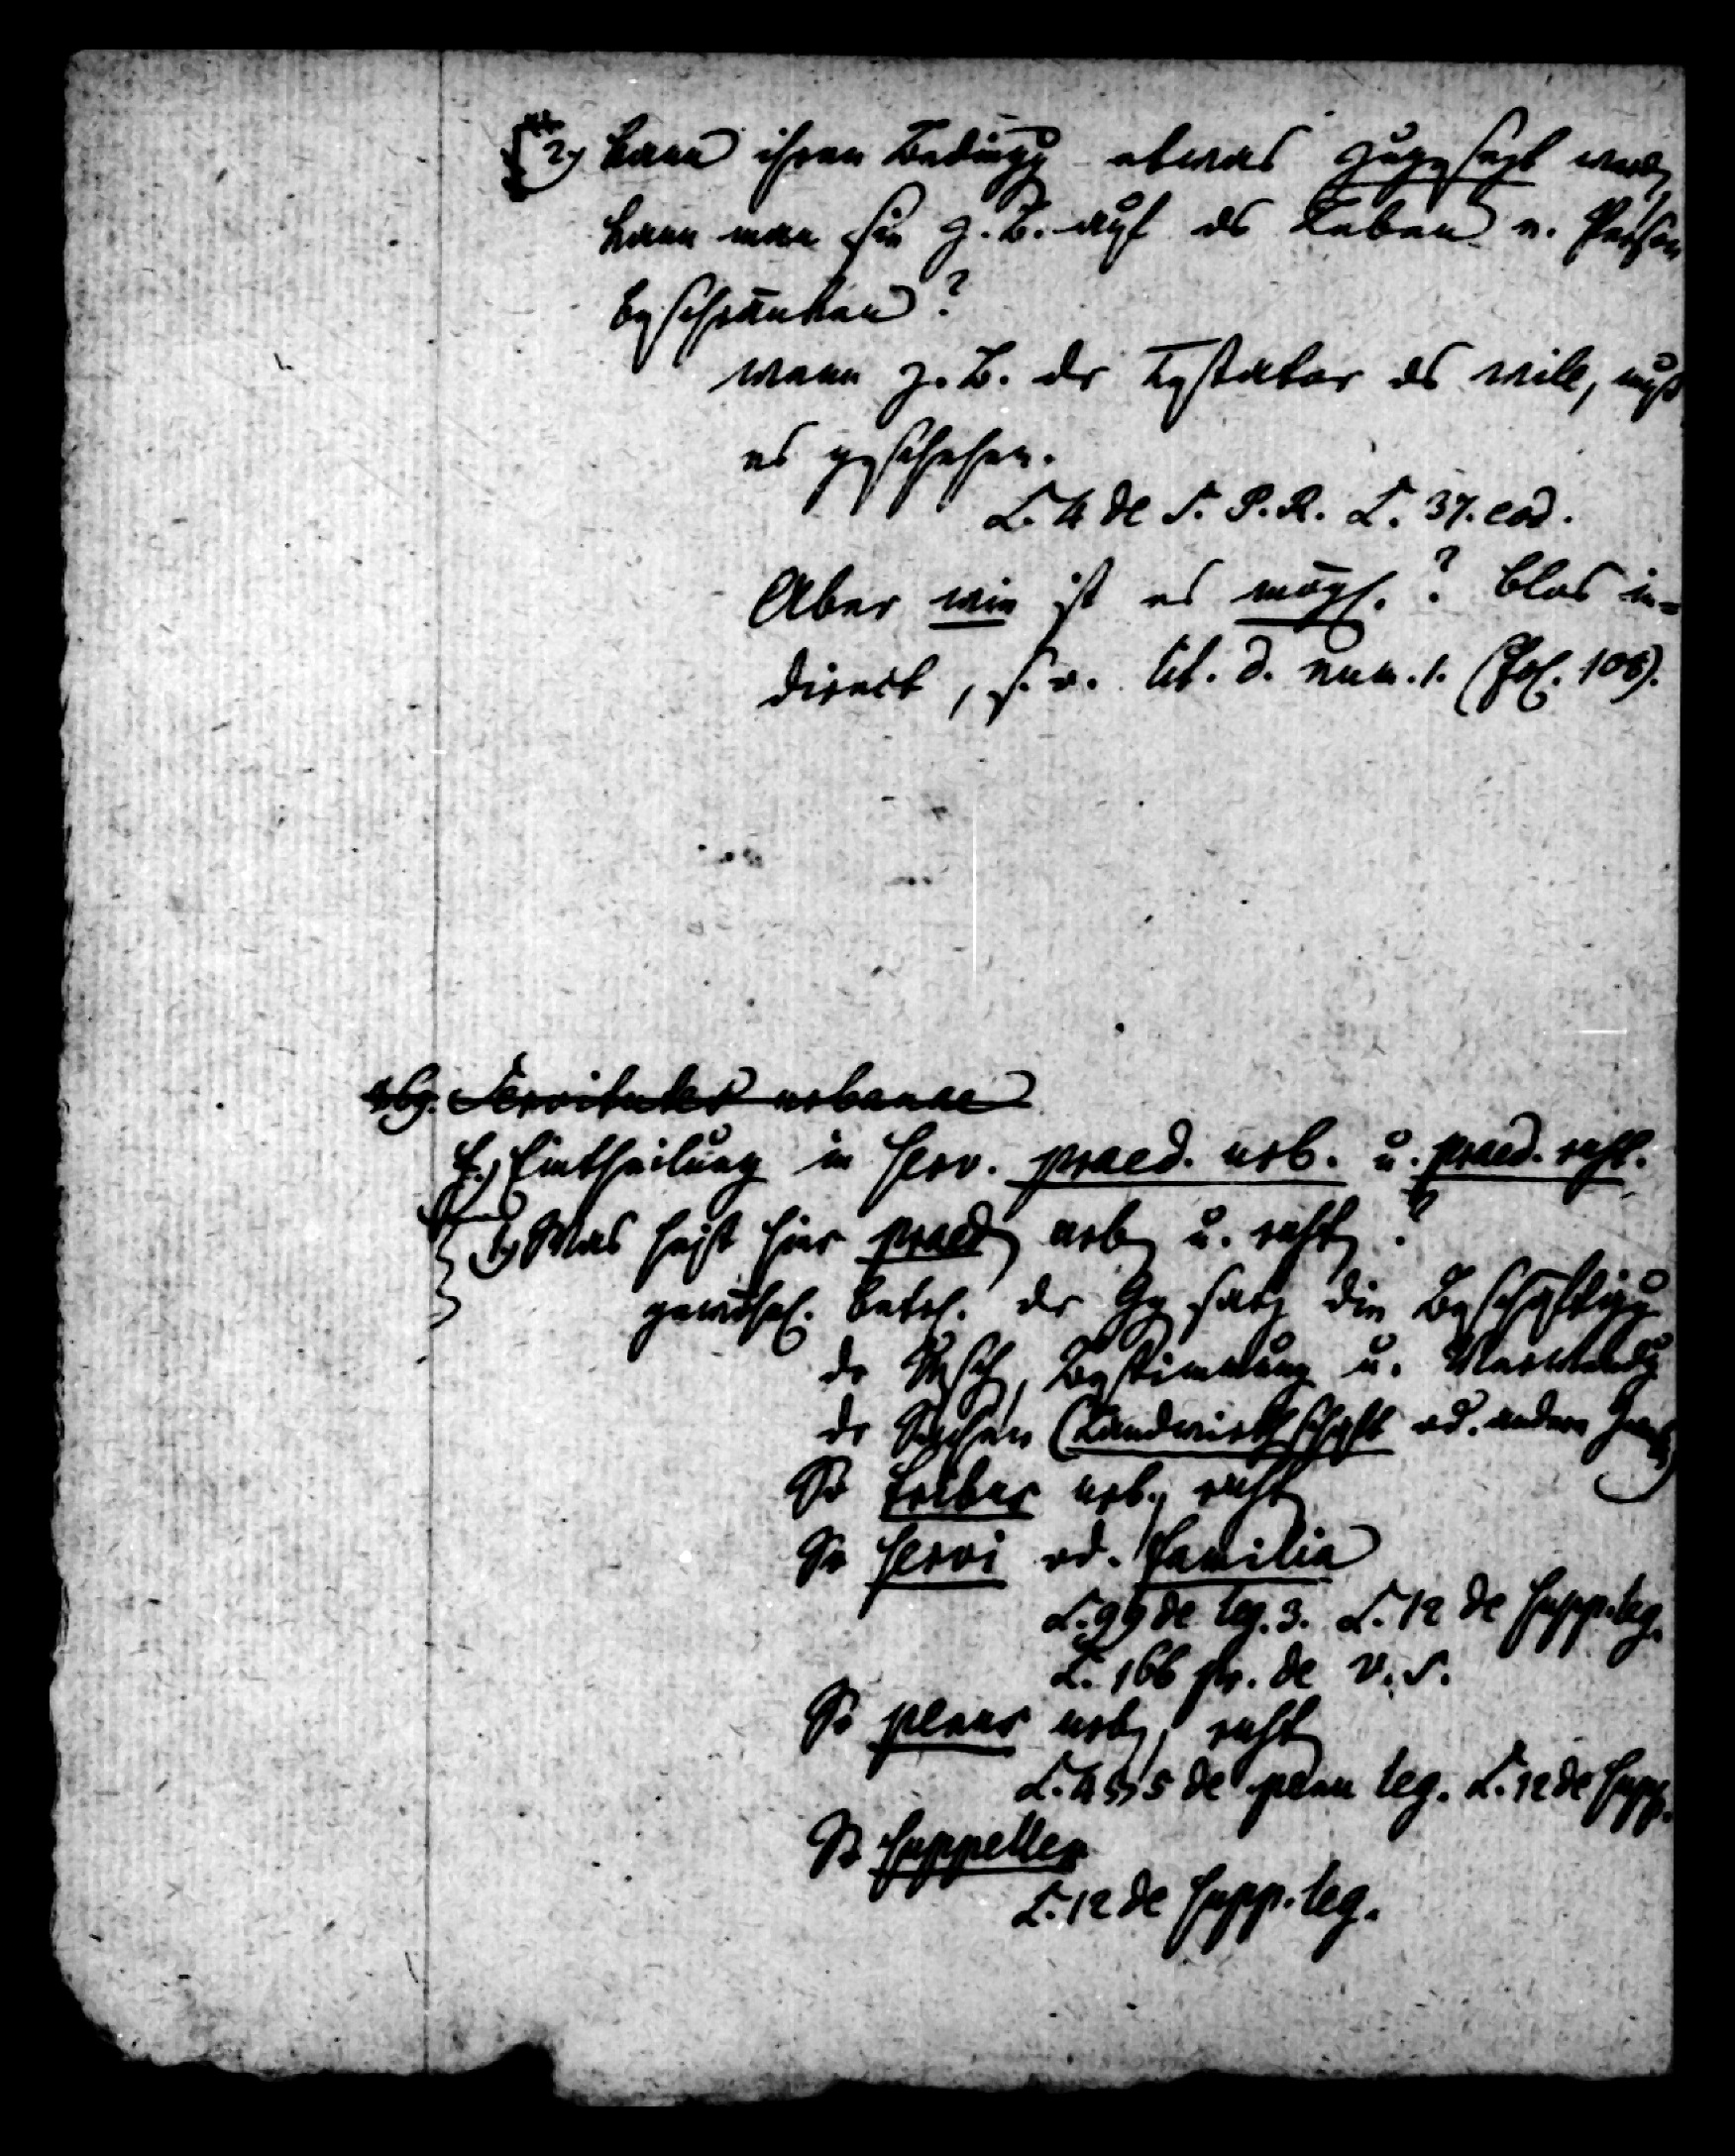 2) kann ihren Beding͞g etwas zugesezt werd͞
kann man sie z. B. auf ds Leben e. Person
beschränken?
wenn z. B. dr Testator es will, muß
es geschehen.
L. 4 de S. P. R. L. 37. eod.
Aber wie ist es mögl.? blos in-
direct, s. o. lit. d. num. 1. (Fol. 108).
Servitutes urbanae
f.) Eintheilung in serv. praed. urb. u. praed. rust.
1) Was heist hier praed urb u. rust?
gewöhnl. betr. dr Ggsatz die Beschäftigg
dr Msch, Bestimmung u. Verwendg
dr Sachen (Landwirthschaft od. andere
So tribus urb, rust
So servi od. familia
L. 99 de leg. 3. L. 12 de supp. leg.
L. 166 pr. de V. S.
So penus urb, rust
L. 4 § 5 de penu leg. L. 12 de supp.
So suppellex
L. 12 de supp. leg.